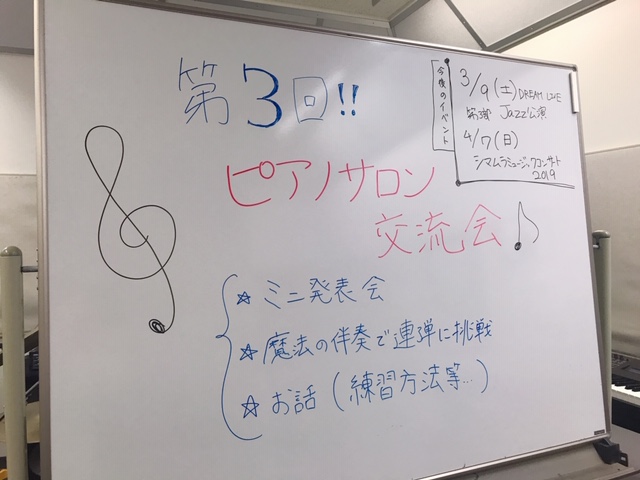 第3回!!
ピアノサロン
交流会♪
☆ミニ発表会
☆魔法の伴奏で連弾に挑戦
☆お話(練習方法等…)
今後のイベント
3/9(土)DREAM LIVE
第3部 Jazz公演
4/7(日)
シマムラミュージックコンサート
2019